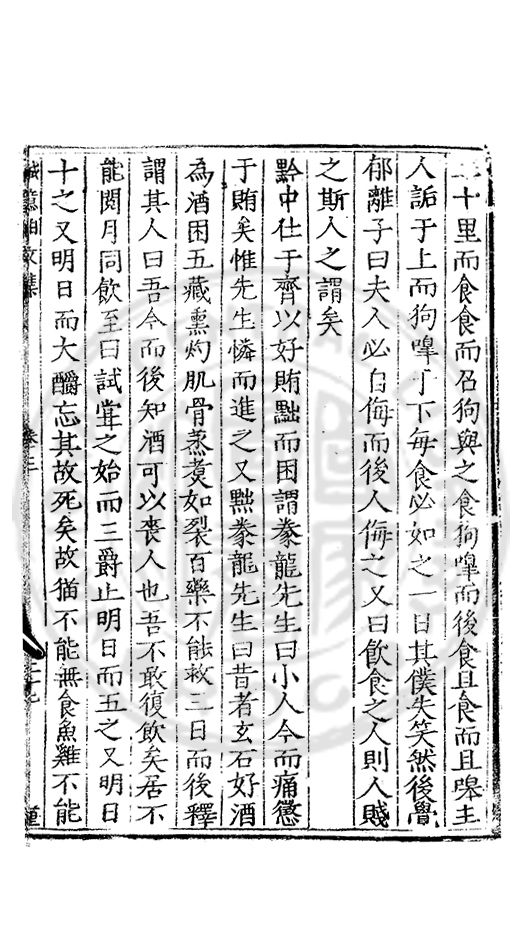 十里而食食而召狗與之食狗嘷而後食且食而且嘷主
人詬于上而狗嘷于下每食必如之一日其僕失笑然後覺
郁離子曰夫人必自侮而後人侮之又曰飲食之人則人賤
之斯人之謂矣
黔中仕于齊以好賄黜而困謂豢龍先生曰小人今而痛懲
于賄矣惟先生憐而進之又黜豢龍先生曰昔者玄石好酒
為酒困五藏熏灼肌骨蒸煑如裂百藥不能救三日而後釋
謂其人曰吾今而後知酒可以喪人也吾不敢復飲矣居不
能閱月同飲至曰試甞之始而三爵止明日而五之又明日
十之又明日而大釂忘其故死矣故猫不能無食魚雞不能
誠意伯文集
卷二